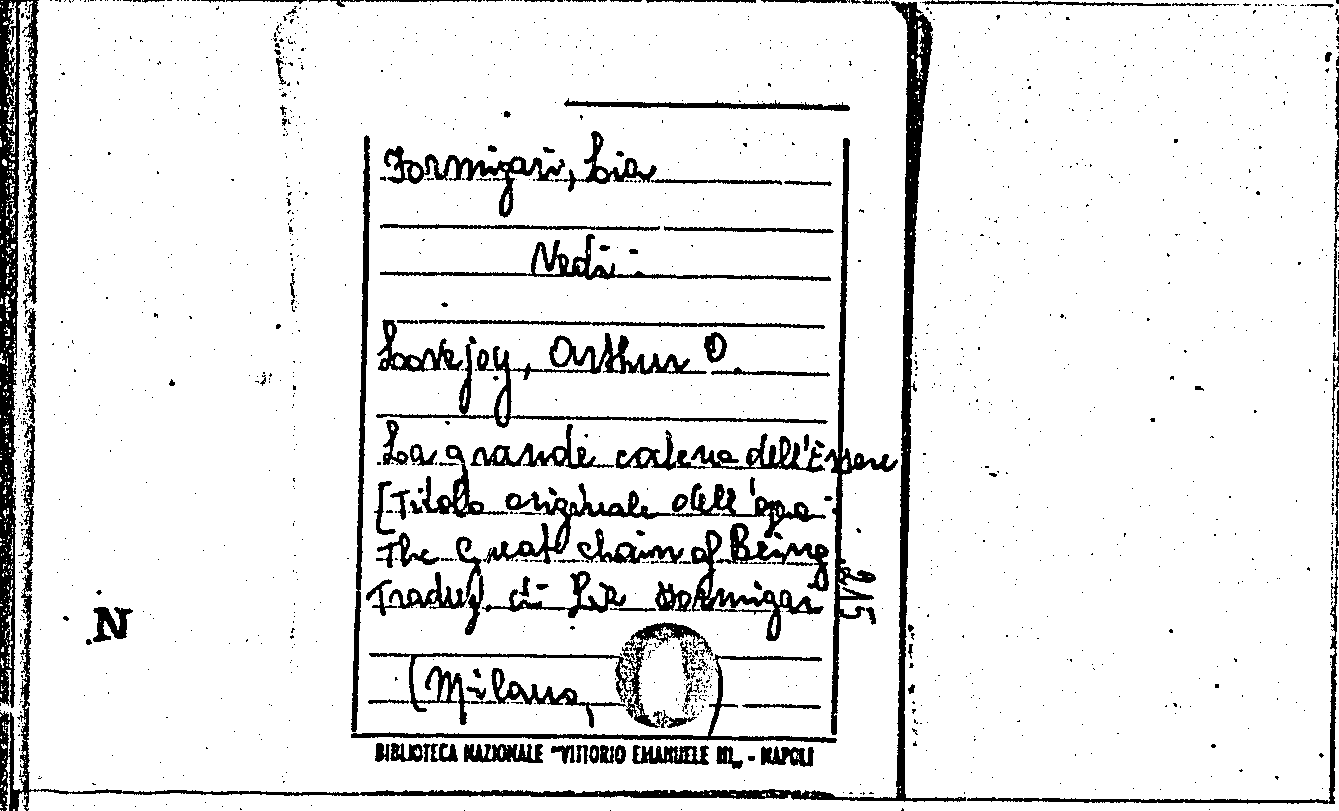 Formigari, Lia
Vedi:
Lovejoy, Arthur O.
La grande catena dell'Essere
[Titolo originale dell'opa:
The Great chain of Being
Traduz. di Lia Formigari
(Milano, )
BIBLIOTECA NAZIONALE "VITTORIO EMANUELE III„ - NAPOLI
215
N